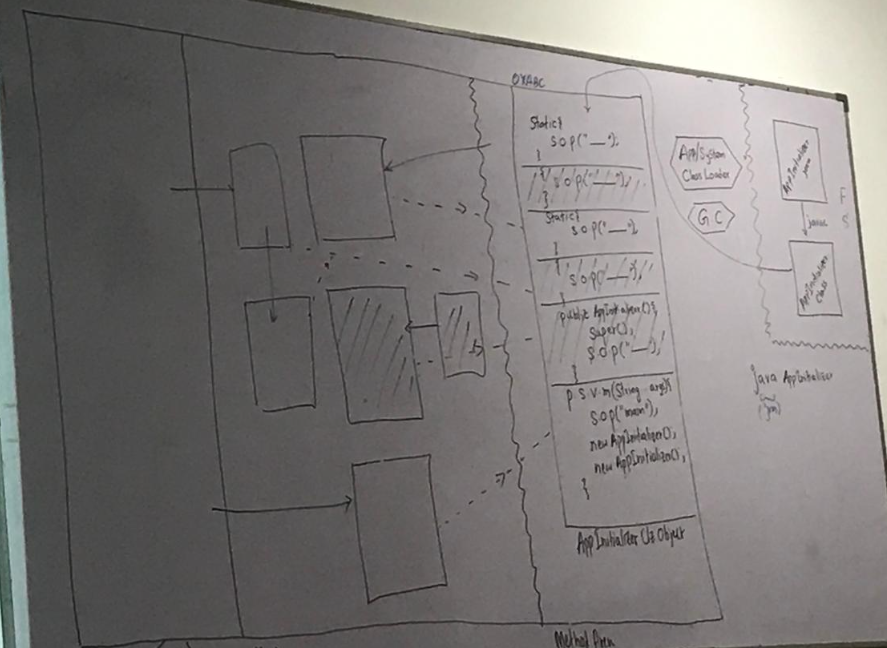 0XABC
Static{
S o p("—");
}
{
S o p("—");
}
Static{
S o p("—");
}
{
S o p("—");
}
public AppInitializer(){
super();
S o p("—");
}
p. s. v. m(String args){
S o p("main");
new AppInitializer();
new AppInitializer();
}
AppInitializer Clz Object
Method Area
App/System
Class Loader
G C
AppInitializer
java
javac
AppInitializer
Class
F
S
java AppInitializer
(jvm)